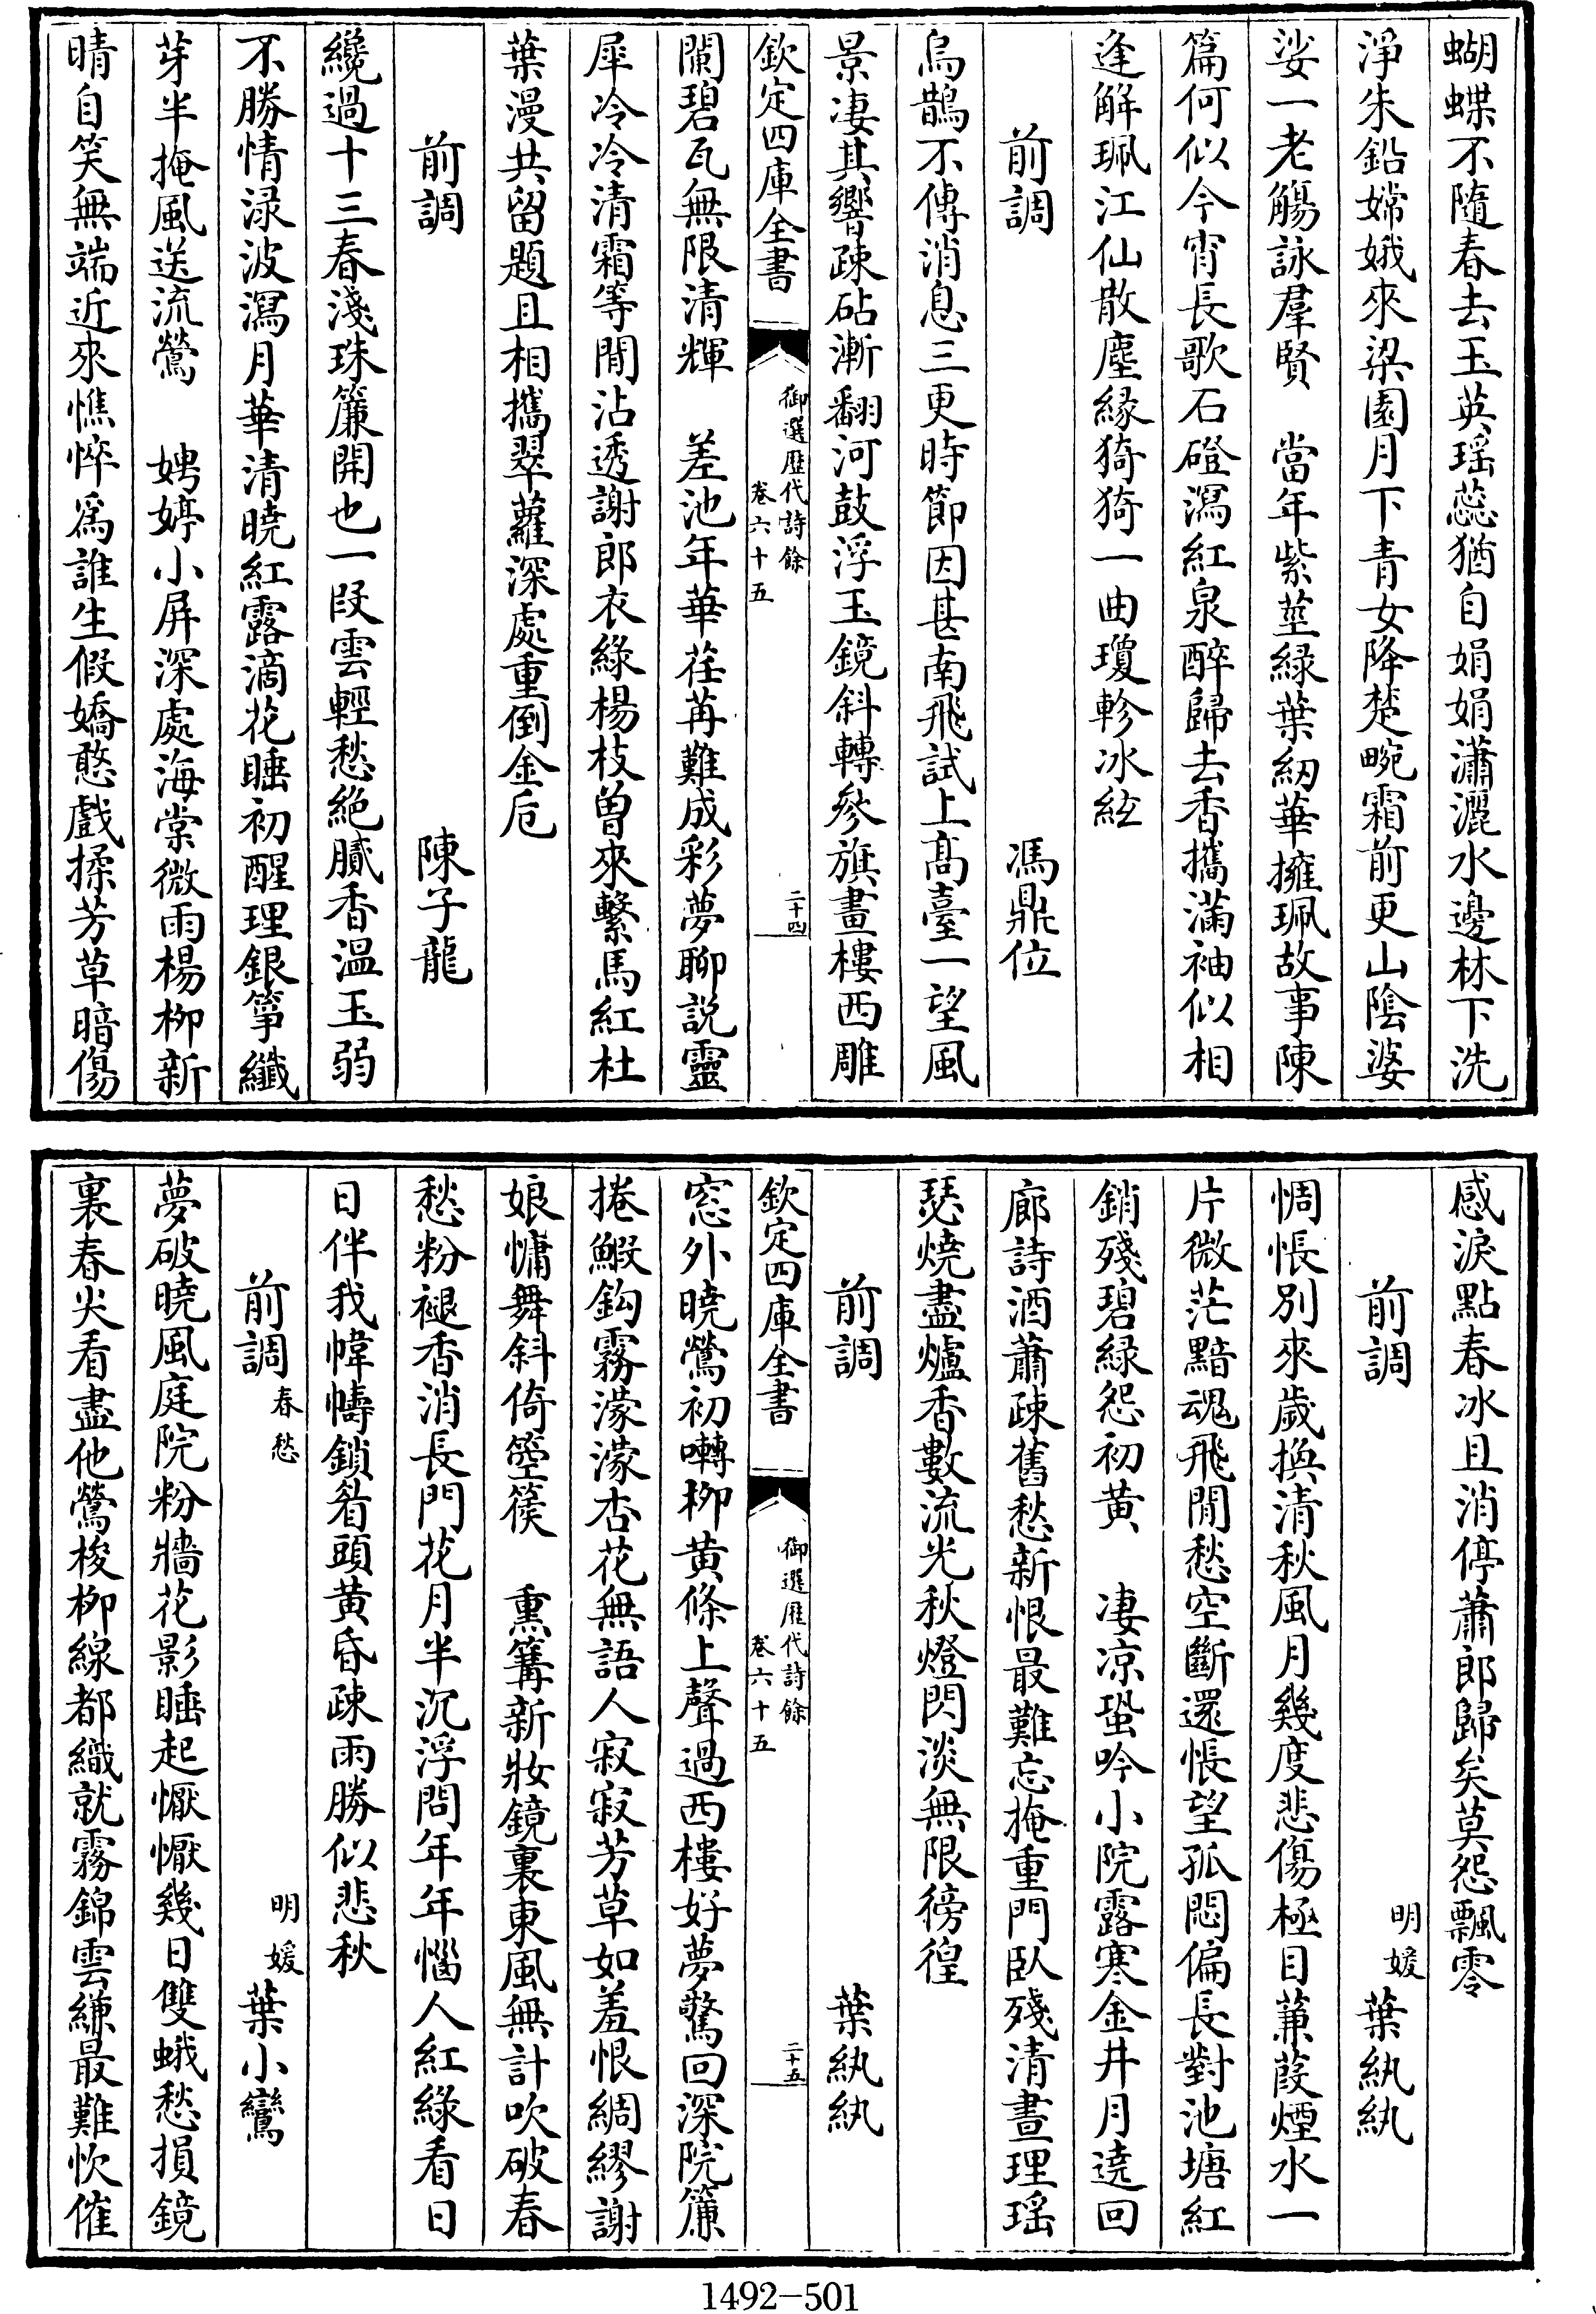 蝴蝶不隨春去玉英瑶蕊猶自娟娟瀟灑水邊林下洗
淨朱鉛嫦娥來梁園月下青女降楚畹霜前更山陰婆
娑一老觴詠羣賢　當年紫莖緑葉紉華擁珮故事陳
篇何似今宵長歌石磴瀉紅泉醉歸去香攜滿袖似相
逢解珮江仙散塵緣猗猗一曲瓊軫冰絃
前調　馮鼎位
烏鵲不傳消息三更時節因甚南飛試上髙臺一望風
景凄其響疎砧漸翻河鼓浮玉鏡斜轉參旗畫樓西雕
闌碧瓦無限清輝　差池年華荏苒難成彩夢聊説靈
犀冷冷清霜等閒沾透謝郎衣綠楊枝曾來繫馬紅杜
葉漫共留題且相攜翠蘿深處重倒金卮
前調　陳子龍
纔過十三春淺珠簾開也一段雲輕愁絶膩香温玉弱
不勝情渌波瀉月華清曉紅露滴花睡初醒理銀箏纖
芽半掩風送流鶯　娉婷小屏深處海棠微雨楊柳新
晴自笑無端近來憔悴爲誰生假嬌憨戲揉芳草暗傷
欽定四庫全書
御選歷代詩餘
卷六十五
二十四
感淚點春冰且消停蕭郎歸矣莫怨飄零
前調　明媛葉紈紈
惆悵别來歲換清秋風月幾度悲傷極目蒹葭煙水一
片微茫黯魂飛閒愁空斷還悵望孤悶偏長對池塘紅
銷殘碧緑怨初黄　凄凉蛩吟小院露寒金井月遶回
廊詩酒蕭疎舊愁新恨最難忘掩重門卧殘清晝理瑶
瑟燒盡爐香數流光秋燈閃淡無限徬徨
前調　葉紈紈
窓外曉鶯初囀柳黄條上聲過西樓好夢驚回深院簾
捲鰕鈎霧濛濛杏花無語人寂寂芳草如羞恨綢繆謝
娘慵舞斜倚箜篌　熏篝新妝鏡裏東風無計吹破春
愁粉褪香消長門花月半沉浮問年年惱人紅綠看日
日伴我幃幬鎖眉頭黄昏疎雨勝似悲秋
前調春愁　明媛葉小鸞
夢破曉風庭院粉牆花影睡起懨懨幾日雙蛾愁損鏡
裏春尖看盡他鶯梭柳線都織就霧錦雲縑最難忺催
欽定四庫全書
御選歷代詩餘
卷六十五
二十五
1492-501